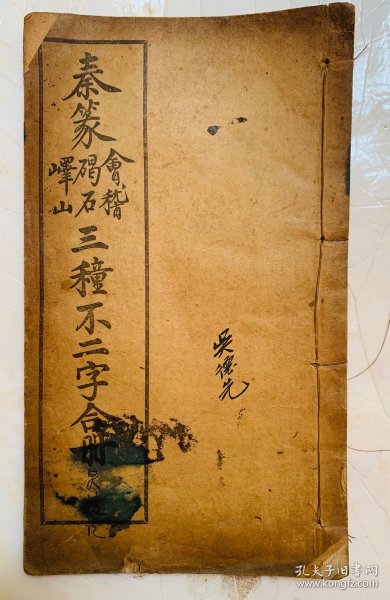 秦篆會稽碣石嶧山三種不二字合冊
吳德先
孔夫子旧书网
www.kongfz.com